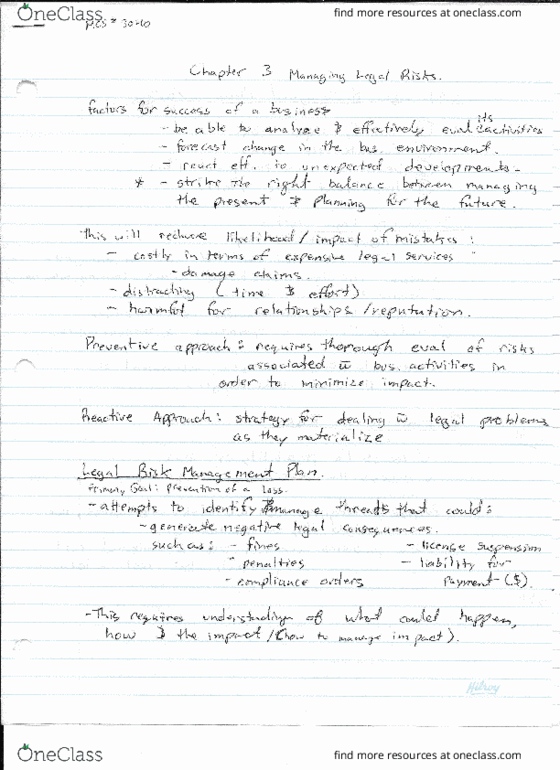 OneClass
find more resources at oneclass.com
Pgs # 30-40
Chapter 3 Managing Legal Risks.
factors for success of a business
its
- be able to analyze & effectively eval activities
- forecast change in the bus. environment.
- react eff. to unexpected developments-
* - strike the right balance between managing
the present & planning for the future.
This will reduce likelihood/impact of mistakes:
- costly in terms of expensive legal services
- damage claims.
- distracting (time & effort)
- harmful for relationships/reputation.
Preventive approach: requires thorough eval of risks
associated w̄ bus. activities in
order to minimize impact.
Reactive Approach: strategy for dealing w̄ legal problems
as they materialize
Legal Risk Management Plan.
Primary Goal: prevention of a loss.
- attempts to identify & manage threats that could:
- generate negative legal consequences.
such as: - fines - license suspension
- penalties - liability for
- compliance orders payment ($).
- This requires understanding of what could happen,
how & the impact/(how to manage impact).
Hilroy
OneClass
find more resources at oneclass.com